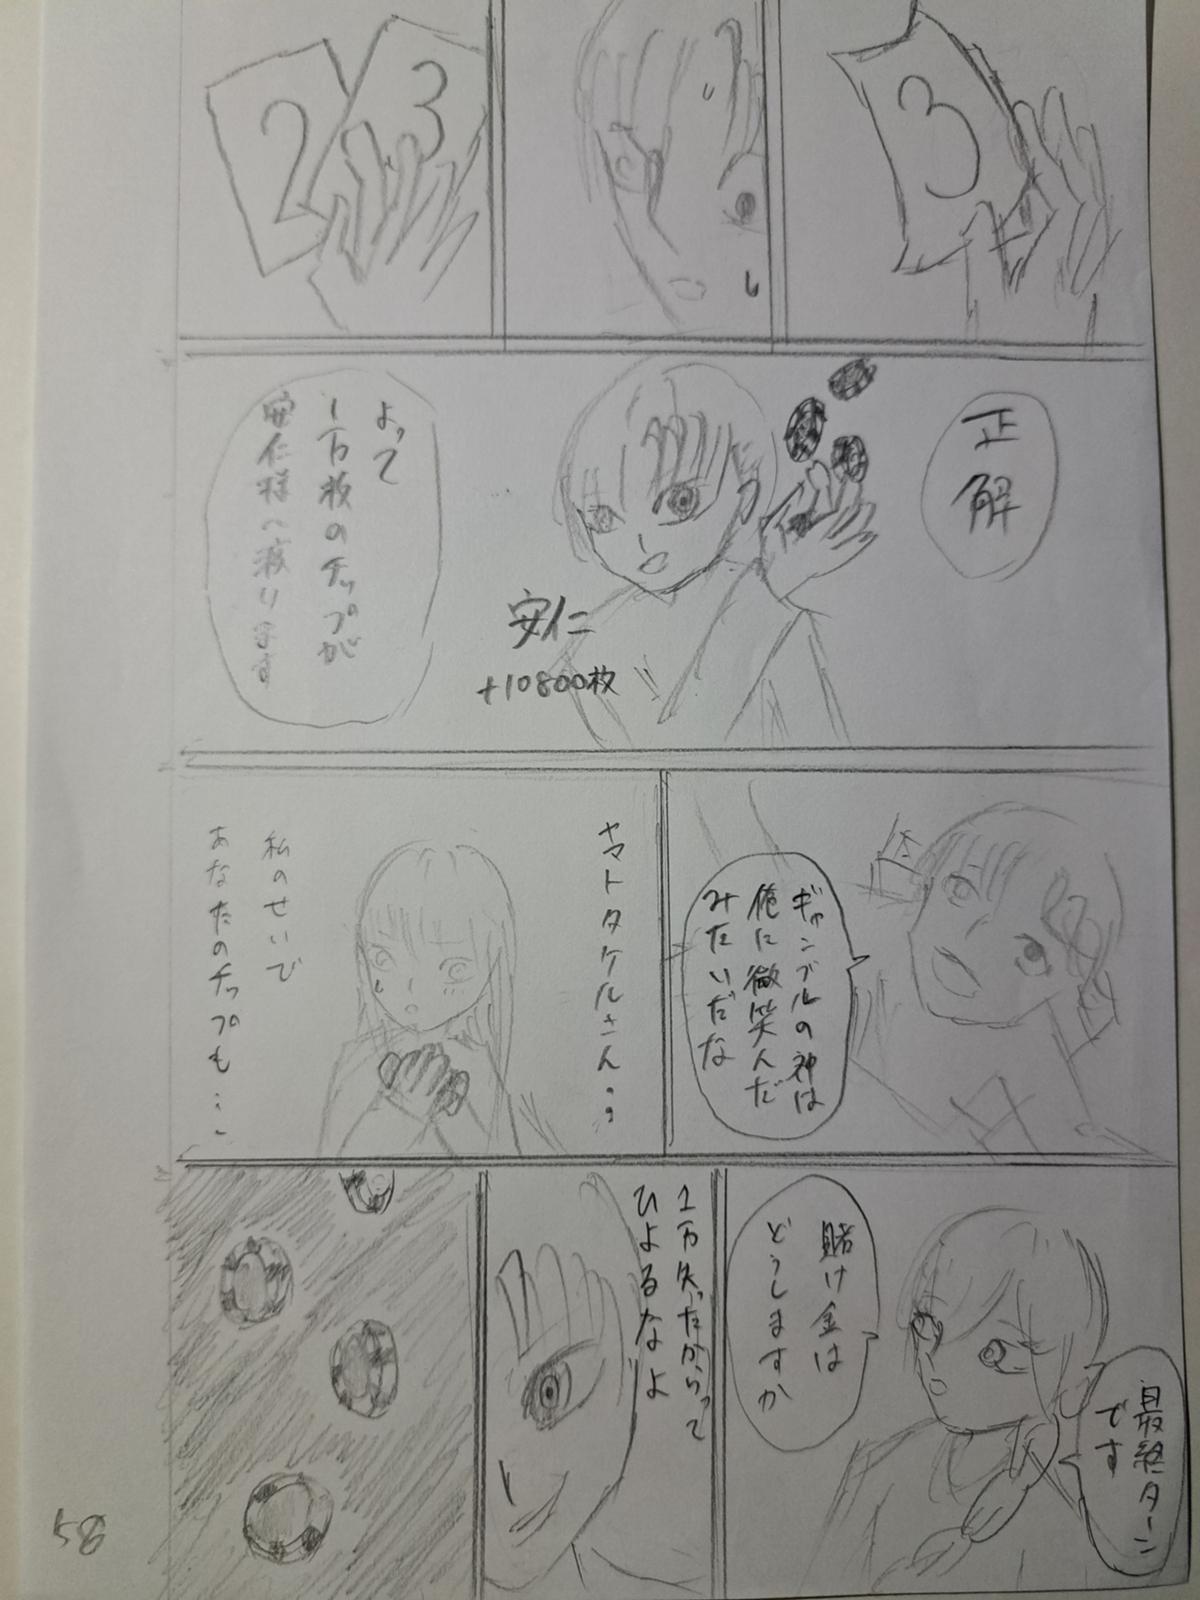 3
2
3
正解
安仁
+10800枚
よって
1万枚のチップが
安仁様へ渡ります
ギャンブルの神は
俺に微笑んだ
みたいだな
ヤマトタケルさん…
私のせいで
あなたのチップも…
最終ターン
です
賭け金は
どうしますか
1万失ったからって
ひよるなよ
58